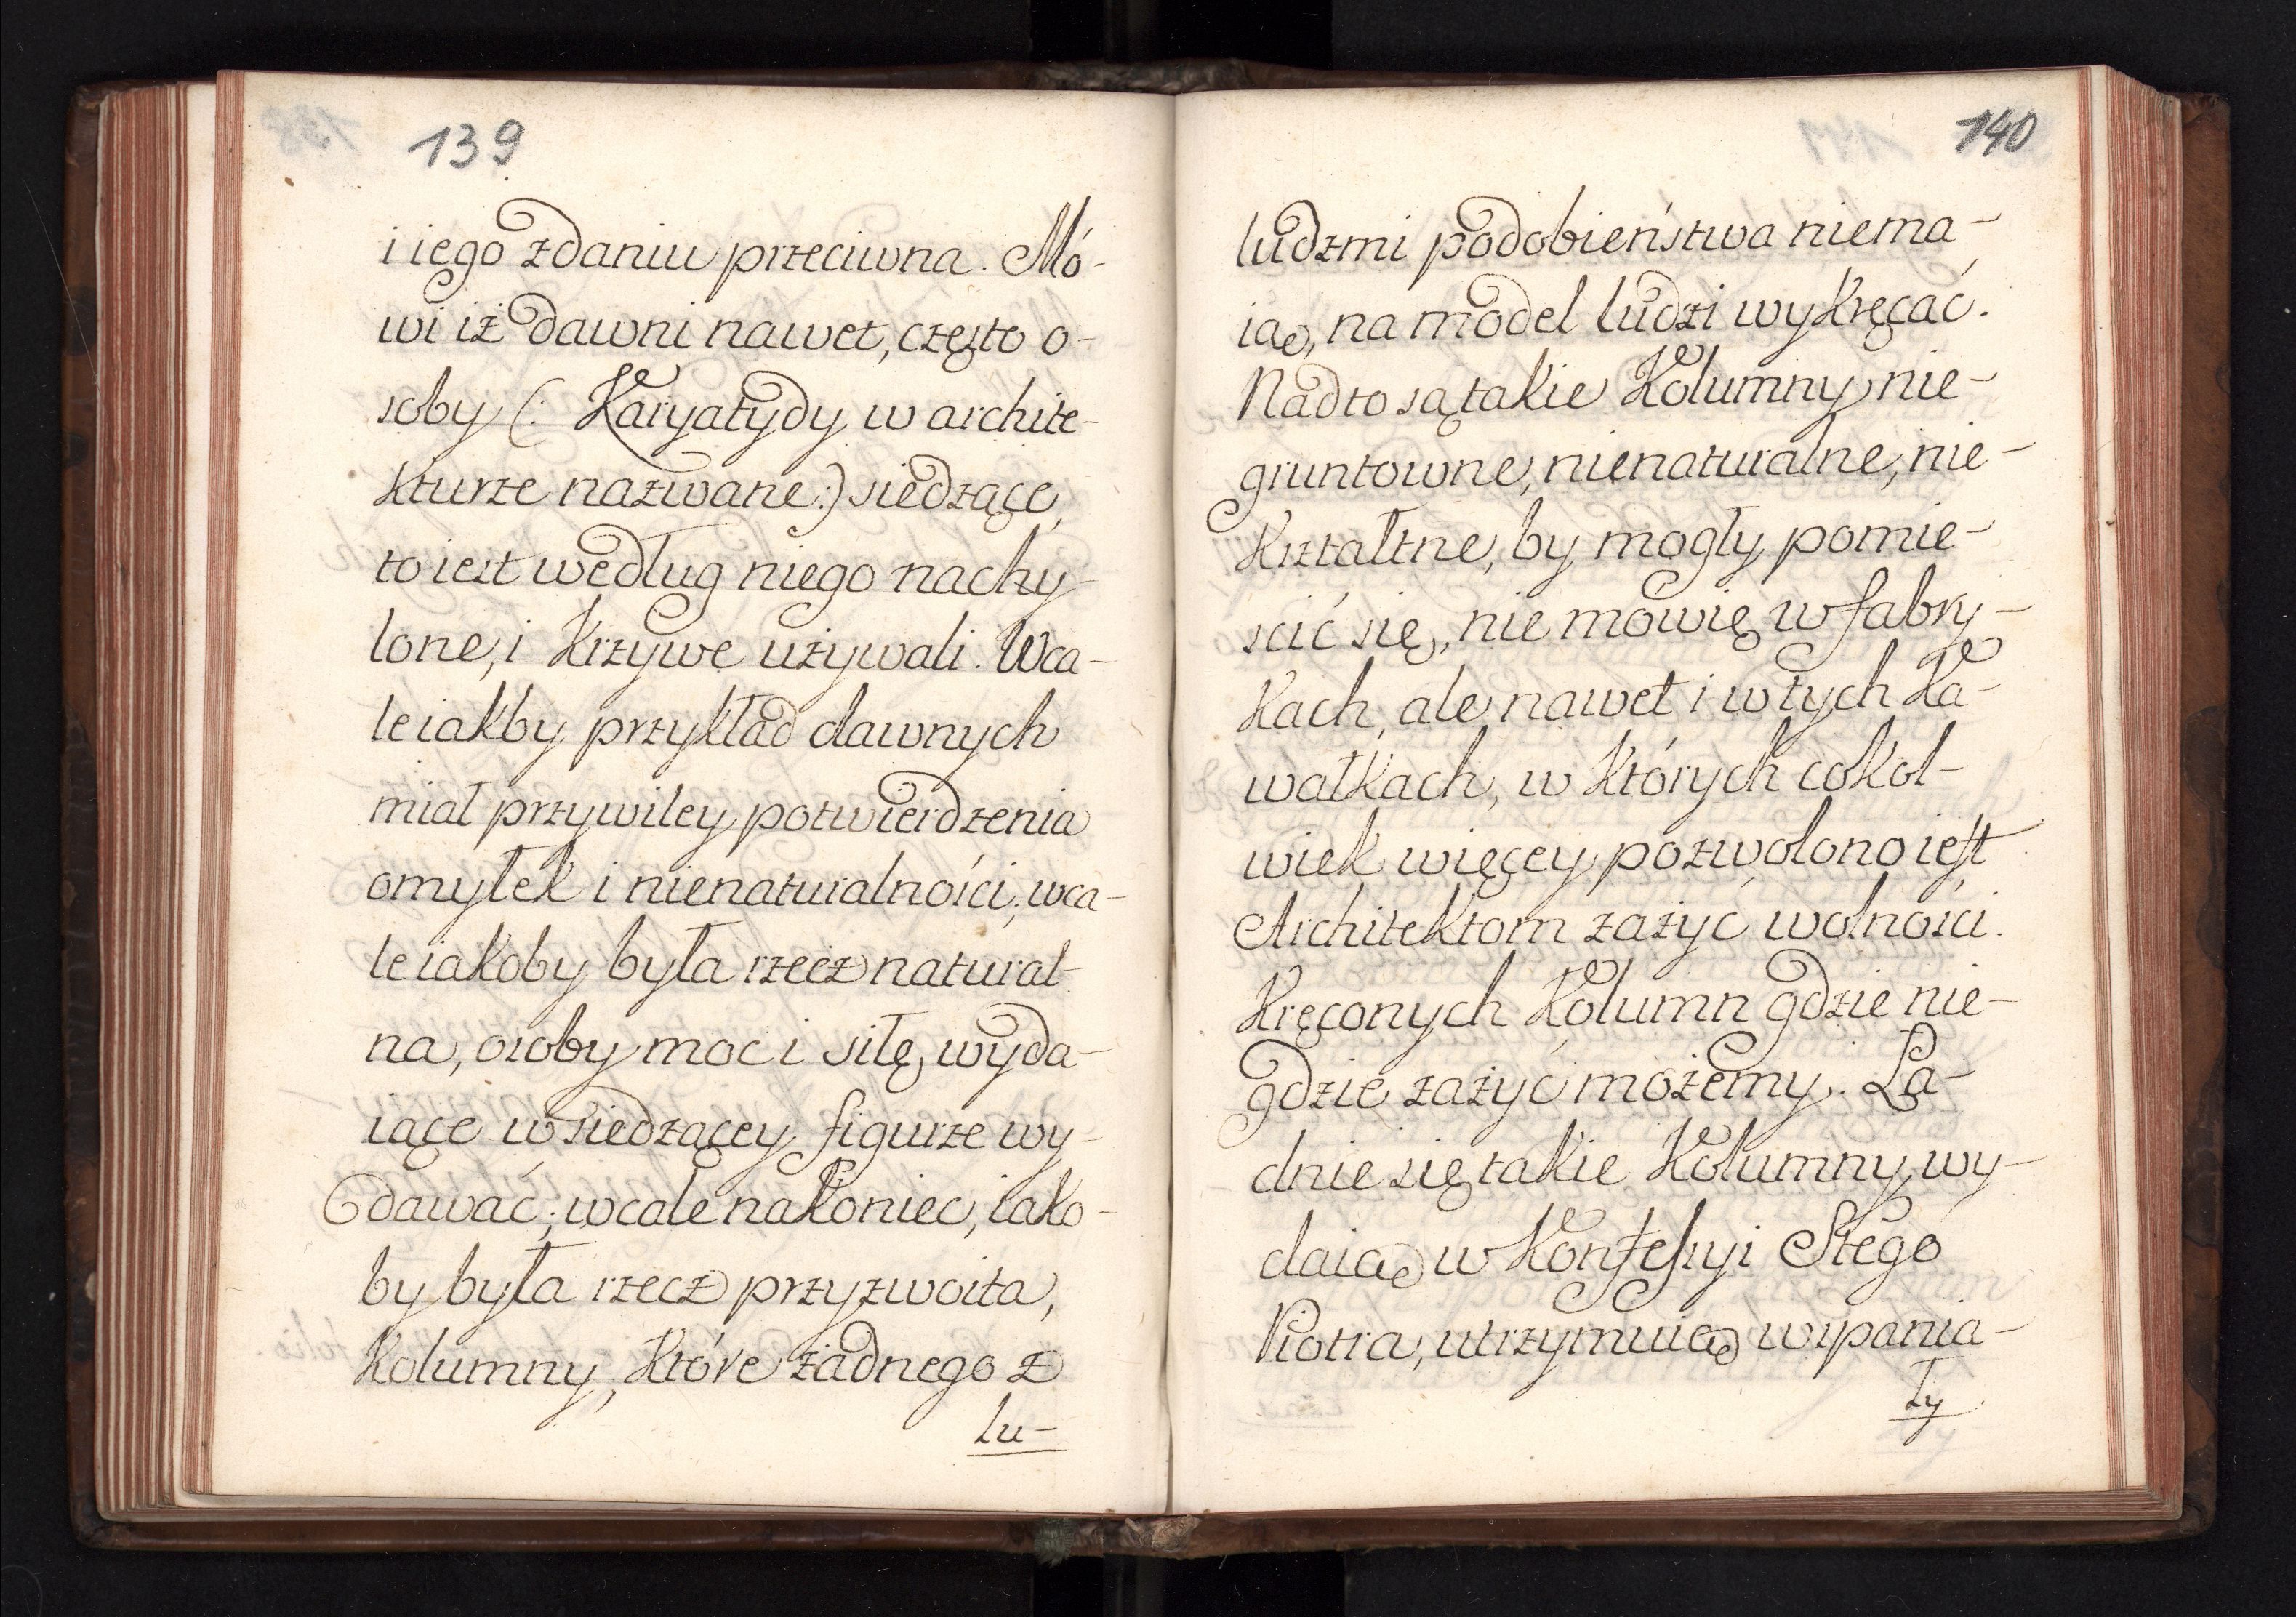 139
i iego zdaniu przeciwna. Mó-
wi iż dawni nawet, często o-
soby (: Karyatydy w archite-
kturze nazwane:) siedzące,
to iest według niego nachy-
lone, i krzywe używali. Wca-
le iakby przykład dawnych
miał przywiley potwierdzenia
omyłek i nienaturalności; wca-
le iakoby była rzecz natural-
na, osoby moc i siłę wyda-
iące w siedzącey figurze wy-
dawać; wcale nakoniec, iako-
by była rzecz przyzwoita,
Kolumny, które żadnego z
lu-
140
ludzmi podobieństwa niema-
ią, na model ludzi wykręcać.
Nadto są takie Kolumny nie-
gruntowne, nienaturalne, nie-
kształtne, by mogły pomie-
scić się, nie mówię w fabry-
kach, ale nawet i w tych ka-
wałkach, w których cokol-
wiek więcey pozwolono iest
Architektom zażyć wolności.
Kręconych Kolumn gdzie nie-
gdzie zażyć możemy. Ła-
dnie się takie Kolumny wy-
daią w Konfessyi Stego
Piotra, utrzymuią wspania-
ły